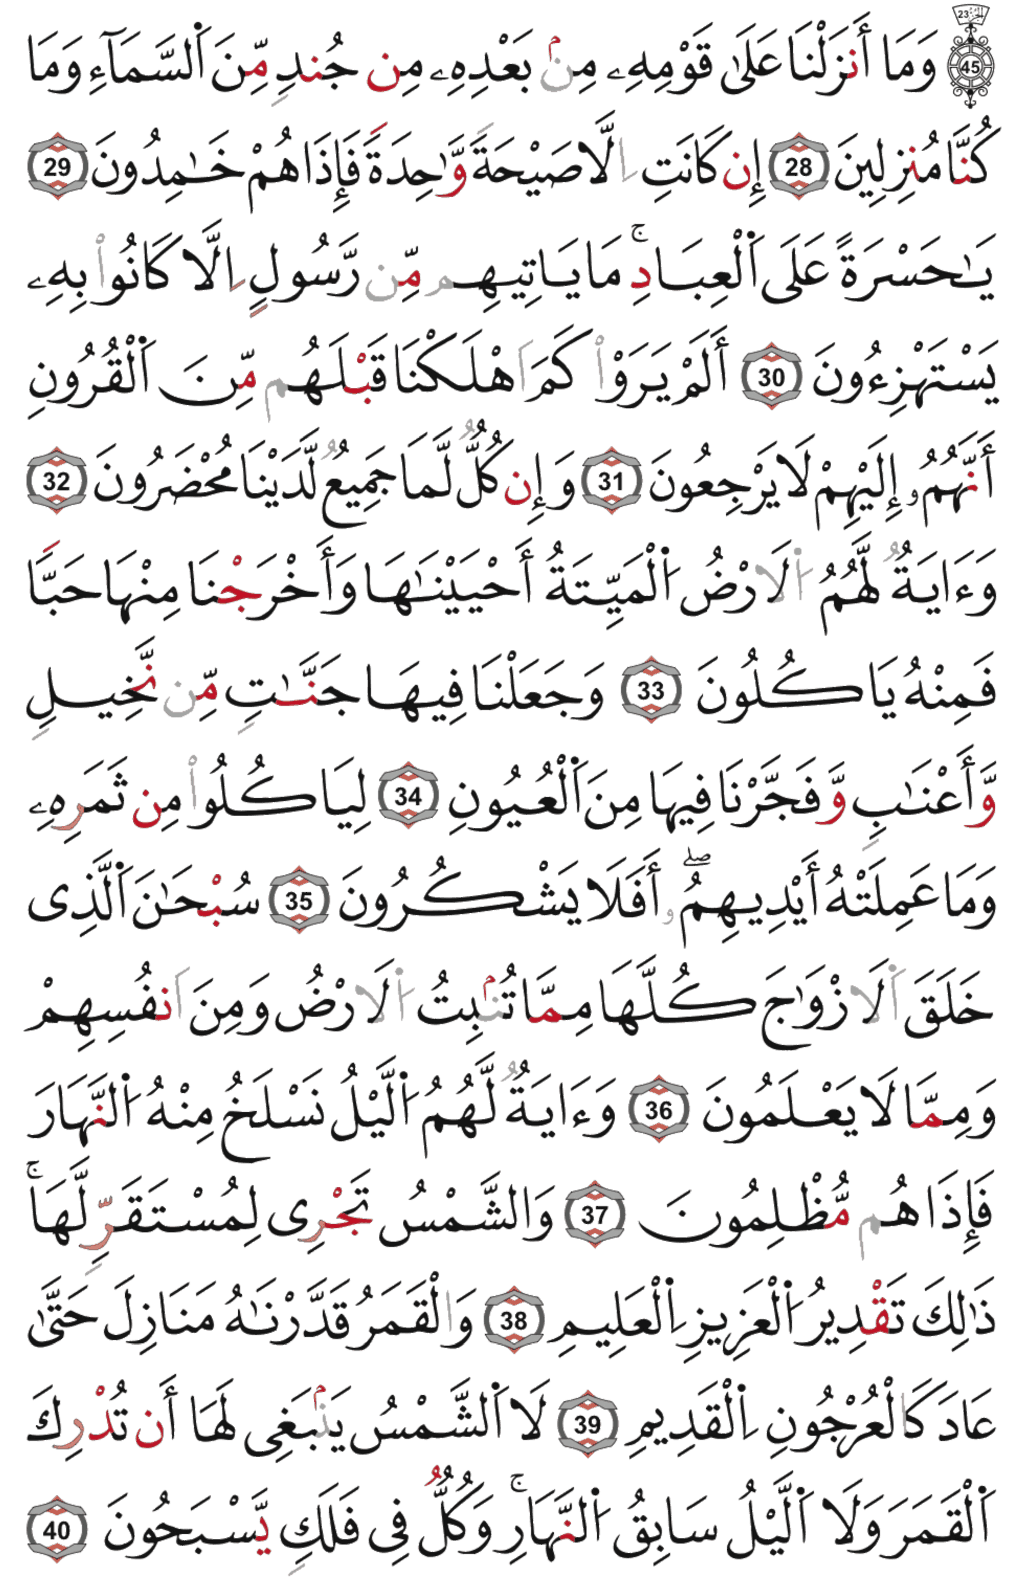 وَمَا أَنزَلْنَا عَلَىٰ قَوْمِهِۦ مِنۢ بَعْدِهِۦ مِن جُندٍ مِّنَ اَ۬لسَّمَآءِ وَمَا
كُنَّا مُنزِلِينَ 28 إِن كَانَتِ اِلَّا صَيْحَةً وَٰحِدَةً فَإِذَا هُمْ خَٰمِدُونَ 29
يَٰحَسْرَةً عَلَى اَ۬لْعِبَادِۚ مَا يَاتِيهِم مِّن رَّسُولٍ اِلَّا كَانُواْ بِهِۦ
يَسْتَهْزِءُونَ 30 أَلَمْ يَرَوْاْ كَمَ اَهْلَكْنَا قَبْلَهُم مِّنَ اَ۬لْقُرُونِ
أَنَّهُمُۥ إِلَيْهِمْ لَا يَرْجِعُونَ 31 وَإِن كُلٌّ لَّمَا جَمِيعٌ لَّدَيْنَا مُحْضَرُونَ 32
وَءَايَةٌ لَّهُمُ اُ۬لَارْضُ اُ۬لْمَيِّتَةُ أَحْيَيْنَٰهَا وَأَخْرَجْنَا مِنْهَا حَبّاً
فَمِنْهُ يَاكُلُونَ 33 وَجَعَلْنَا فِيهَا جَنَّٰتٍ مِّن نَّخِيلٍ
وَّأَعْنَٰبٍ وَّفَجَّرْنَا فِيهَا مِنَ اَ۬لْعُيُونِ 34 لِيَاكُلُواْ مِن ثَمَرِهِۦ
وَمَا عَمِلَتْهُ أَيْدِيهِمُۥٓۖ أَفَلَا يَشْكُرُونَ 35 سُبْحَٰنَ اَ۬لَّذِى
خَلَقَ اَ۬لَازْوَٰجَ كُلَّهَا مِمَّا تُنۢبِتُ اُ۬لَارْضُ وَمِنَ اَنفُسِهِمْ
وَمِمَّا لَا يَعْلَمُونَ 36 وَءَايَةٌ لَّهُمُ اُ۬لَّيْلُ نَسْلَخُ مِنْهُ اُ۬لنَّهَارَ
فَإِذَا هُم مُّظْلِمُونَ 37 وَالشَّمْسُ تَجْرِى لِمُسْتَقَرٍّ لَّهَاۚ
ذَٰلِكَ تَقْدِيرُ اُ۬لْعَزِيزِ اِ۬لْعَلِيمِ 38 وَالْقَمَرُ قَدَّرْنَٰهُ مَنَازِلَ حَتَّىٰ
عَادَ كَالْعُرْجُونِ اِ۬لْقَدِيمِ 39 لَا اَ۬لشَّمْسُ يَنۢبَغِى لَهَا أَن تُدْرِكَ
اَ۬لْقَمَرَ وَلَا اَ۬لَّيْلُ سَابِقُ اُ۬لنَّهَارِۚ وَكُلٌّ فِى فَلَكٍ يَّسْبَحُونَ 40